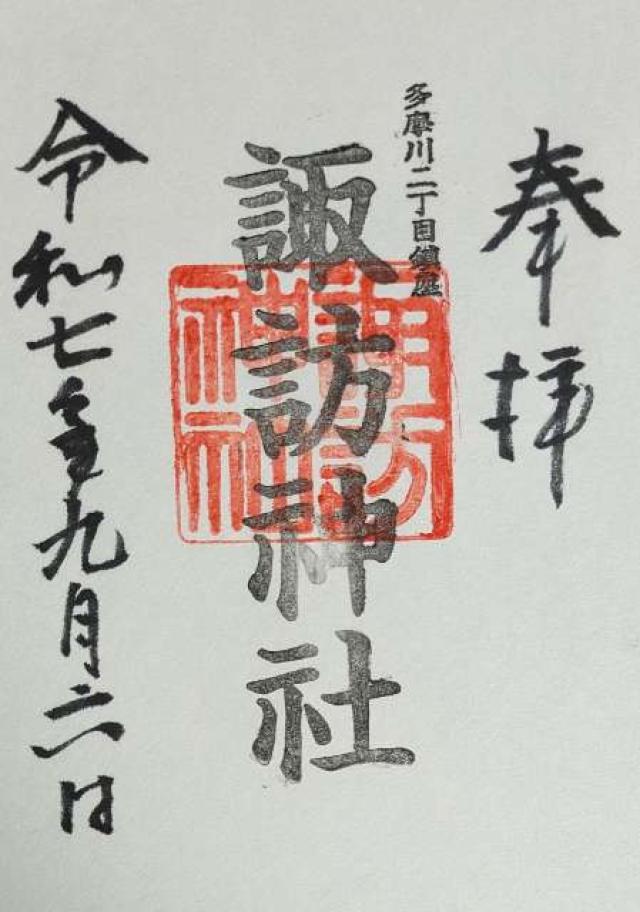 奉拝
多摩川二丁目鎮座
諏訪神社
諏訪神社
令和七年九月六日